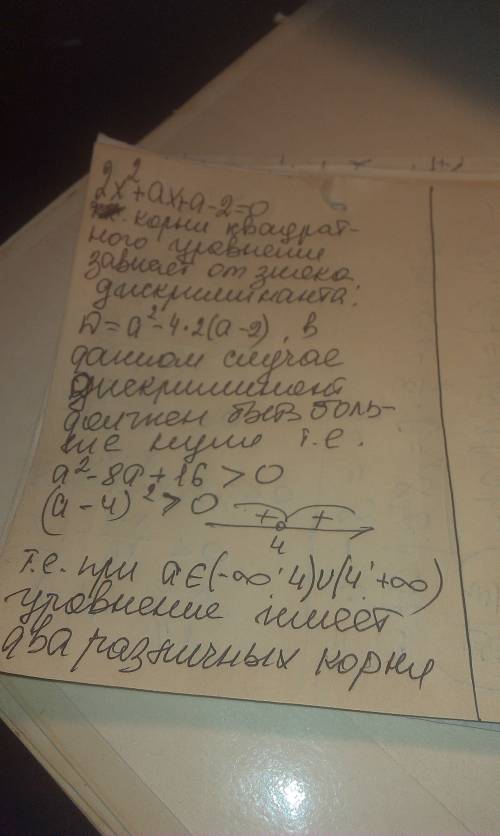 2x²+ax+a-2=0
корни квадрат-
ного уравнения
зависят от знака
дискриминанта:
D=a²-4·2(a-2), в
данном случае
Дискриминант
должен быть боль-
ше нуля т.е.
a²-8a+16>0
(a-4)²>0 + +
4
т.е. при a∈(-∞;4)∪(4;+∞)
уравнение имеет
два различных корня